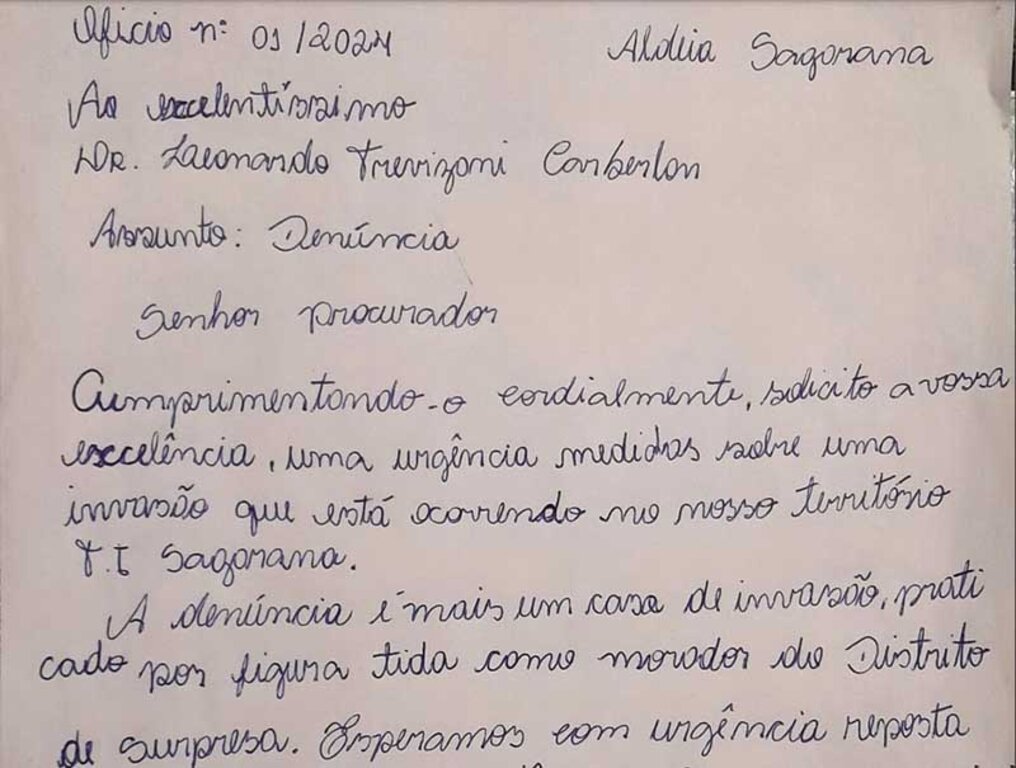 Oficio nº 01/2024 Aldeia Sagorana
Ao excelentíssimo
DR. Leonardo Trevizani Carberlon
Assunto: Denúncia
Senhor procurador
Cumprimentando-o cordialmente, solicito a vossa
excelência, uma urgência medidas sobre uma
invasão que está ocorrendo no nosso território
T.I Sagorana.
A denúncia é mais um casa de invasão, prati
cado por figura tida como morador do Distrito
de surpresa. Esperamos com urgência reposta